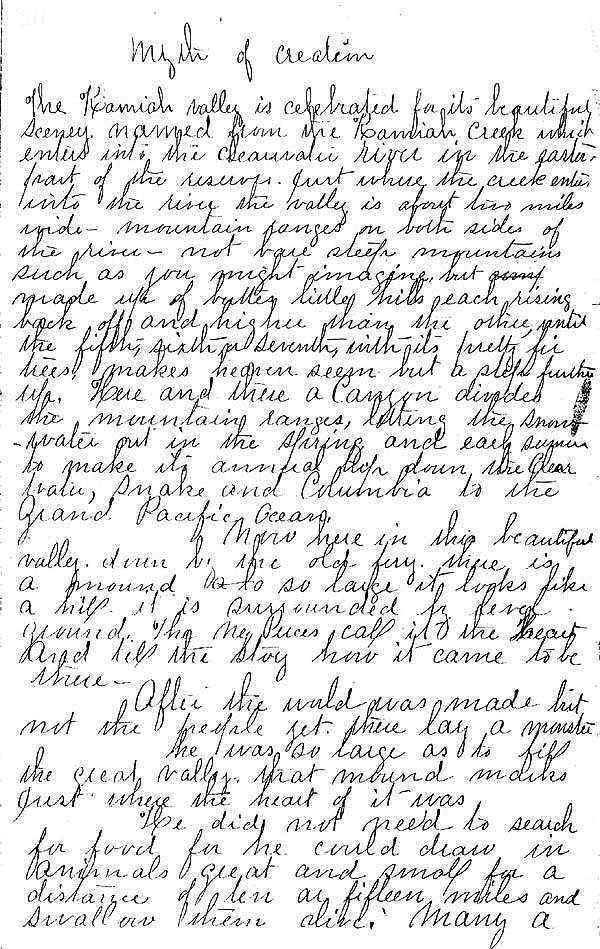 Myth of Creation
The Kamiah valley is celebrated for its beautiful
scenery. named from the Kamiah Creek which
enters into the Clearwater river in the eastern
part of the reserve. Just where the creek enters
into the river the valley is about two miles
wide - mountain ranges on both sides of
the river - not bare steep mountains
such as you might imagine, but
made up of buttes little hills each rising
back off and higher than the other, until
the fifth, sixth or seventh, with its pretty fir
trees, makes heaven seem but a step further
up. Here and there a Canyon divides
the mountain ranges, letting the snow
-water out in the spring and early summer
to make its annual trip down the Clear
water, Snake and Columbia to the
Grand Pacific Ocean.
Now here in this beautiful
valley. down by the old ferry. there is
a mound so large it looks like
a hill. it is surrounded by level
ground. The Nez Perces call it the Heart
And tell the story how it came to be
there -
After the world was made but
not the people yet. there lay a monster
he was so large as to fill
the great valley. that mound marks
just where the heart of it was
He did not need to search
for food for he could draw in
animals great and small for a
distance of ten or fifteen miles and
swallow them alive. Many a